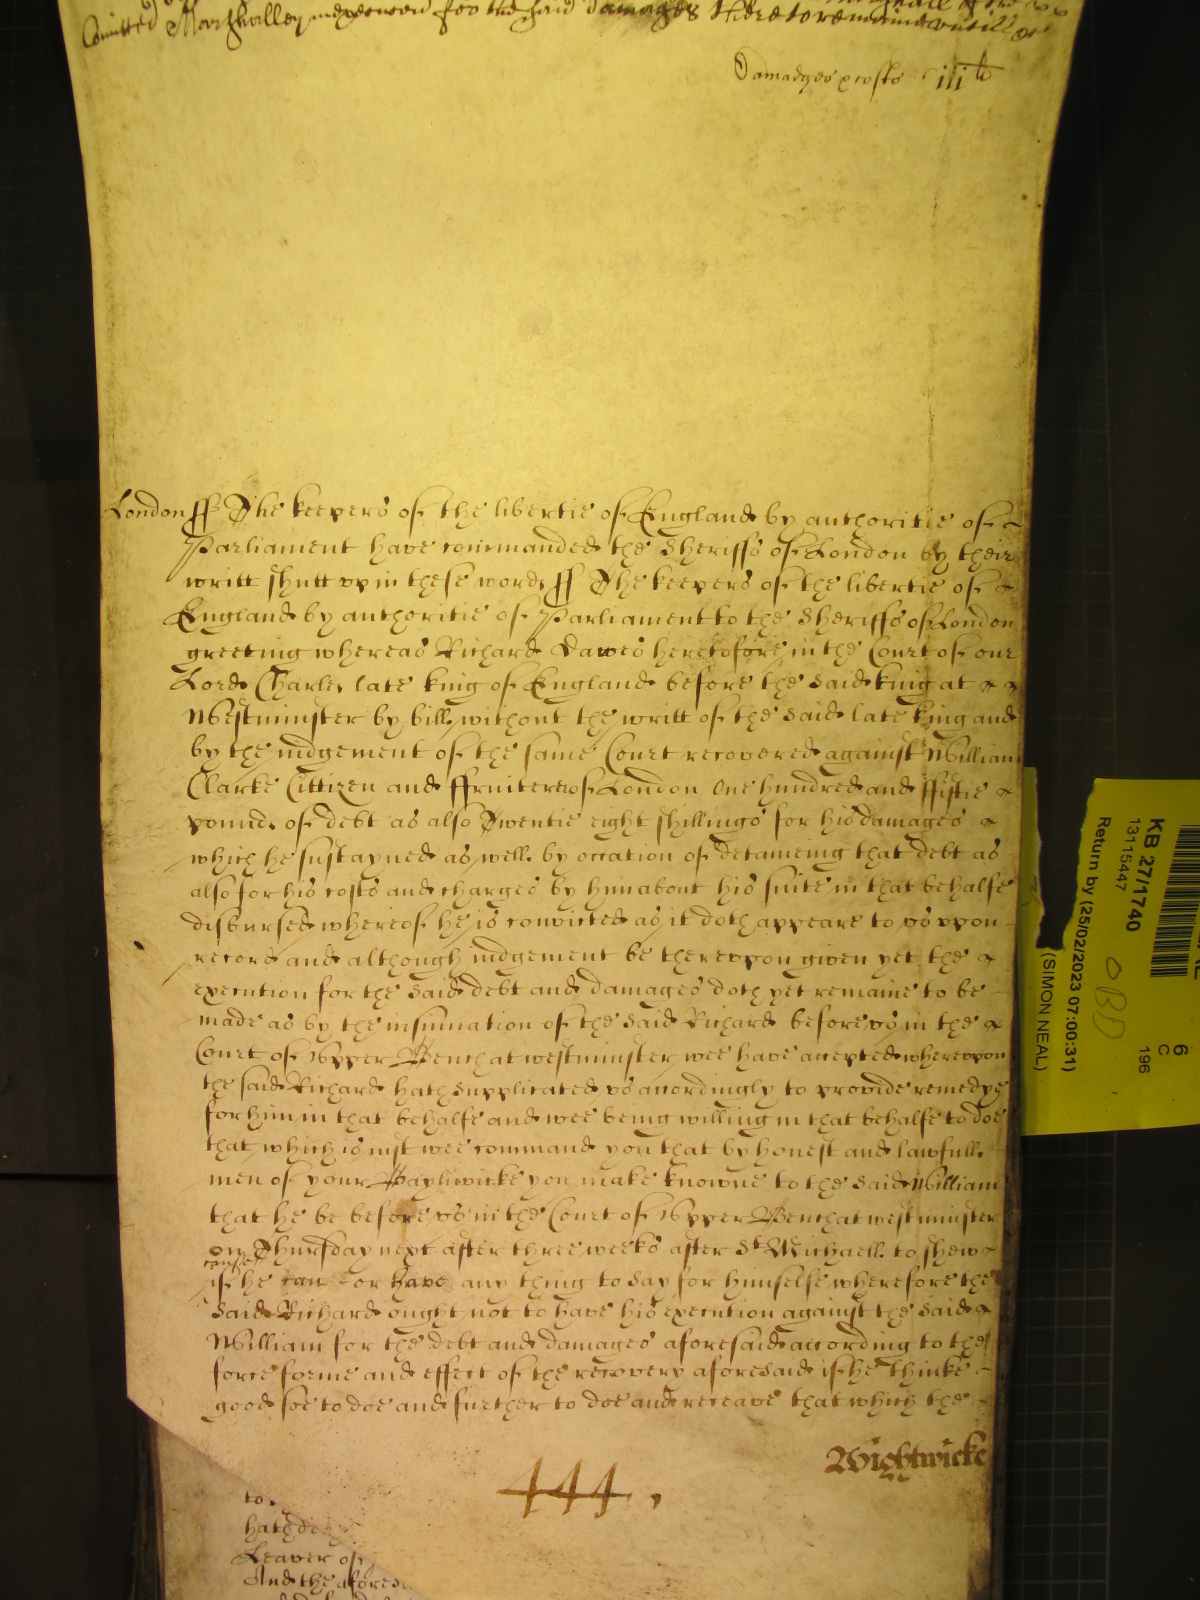 Comitted Marshalley in execucon for the said damages There to remaine untill &c
Damadges & costs iij li
London ss The keepers of the libertie of England by authoritie of
Parliament have commanded the Sheriffs of London by their
writt shutt vp in these words ss The keepers of the libertie of
England by authoritie of Parliament to the Sheriffs of London
greeting whereas Richard Dawes heretofore in the Court of our
Lord Charles late king of England before the said king at
Westminster by bill without the writt of the said late king and
by the iudgement of the same Court recovered against William
Clarke Cittizen and ffruiterer of London One hundred and ffiftie
pounds of debt as also Twentie eight shillings for his damages
which he sustayned as well by occation of detaineing that debt as
also for his costs and charges by him about his suite in that behalfe
disbursed whereof he is convicted as it doth appeare to vs vpon
record and although iudgement be therevpon given yet the
execution for the said debt and damages doth yet remaine to be
made as by the insinuation of the said Richard before vs in the
Court of Vpper Bench at westminster wee have accepted wherevpon
the said Richard hath supplicated vs accordingly to provide remedye
for him in that behalfe and wee being willing in that behalfe to doe
that which is iust wee command you that by honest and lawfull
men of your Bayliwicke you make knowne to the said William
that he be before vs in the Court of Vpper Bench at westminster
on Thursday next after three weeks after St Michaell to shew
cause
if he can or have any thing to say for himselfe wherefore the
said Richard ought not to have his execution against the said
William for the debt and damages aforesaid according to the
force forme and effect of the recovery aforesaid if he thinke
good soe to doe and further to doe and receave that which the
Wightwicke
444
to
hath de
Leaver of
And the aforesa
KB 27/1740
13115447
Return by (25/02/2023 07:00:31)
(SIMON NEAL)
6
C
196